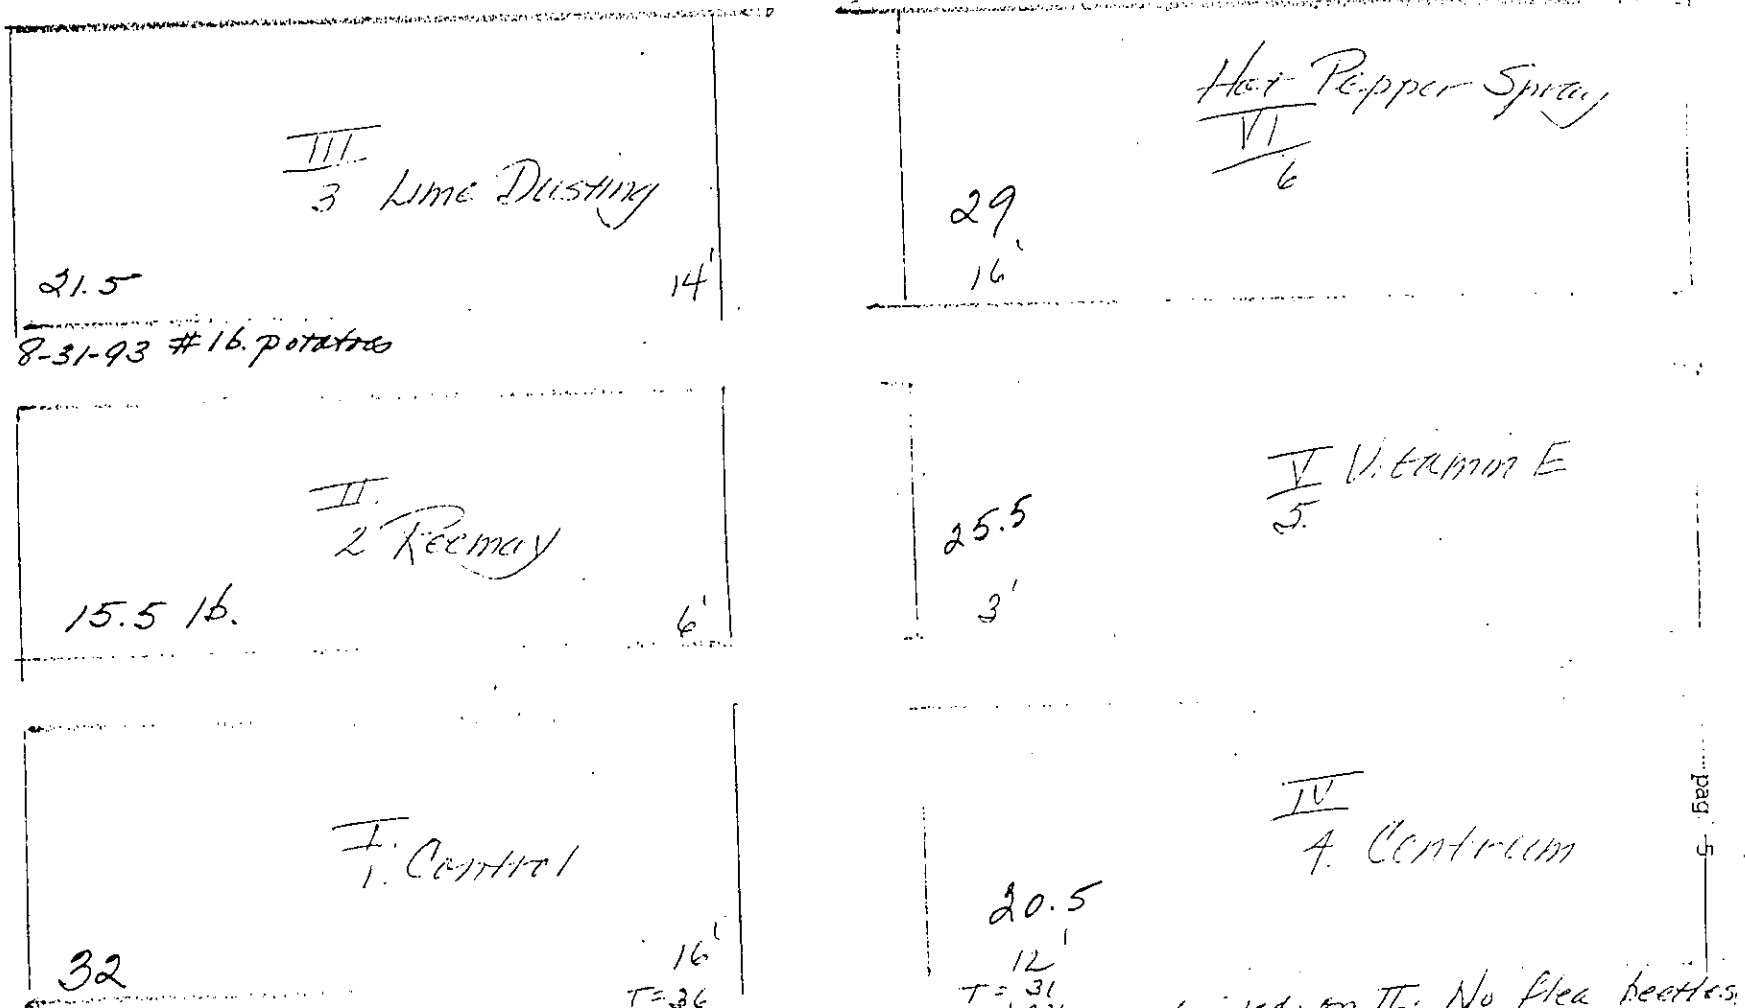 III
3 Lime Dusting
21.5
14'
8-31-93 # lb. potatoes
II.
2 Reemay
15.5 lb.
6'
I.
1. Control
32
16'
T=36
Hot Pepper Spray
VI
6
29
16'
V Vitamin E
5.
25.5
3'
IV
4. Centrum
20.5
12'
T=31
on II. No flea beetles.
pag 5